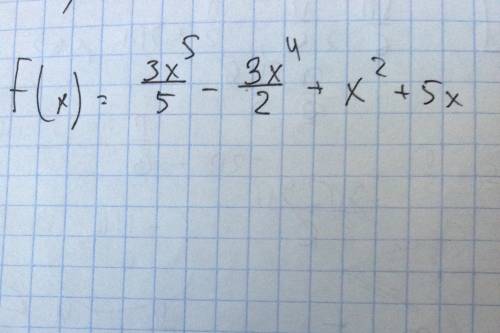 F(x) = 3x⁵/5 - 3x⁴/2 + x² + 5x